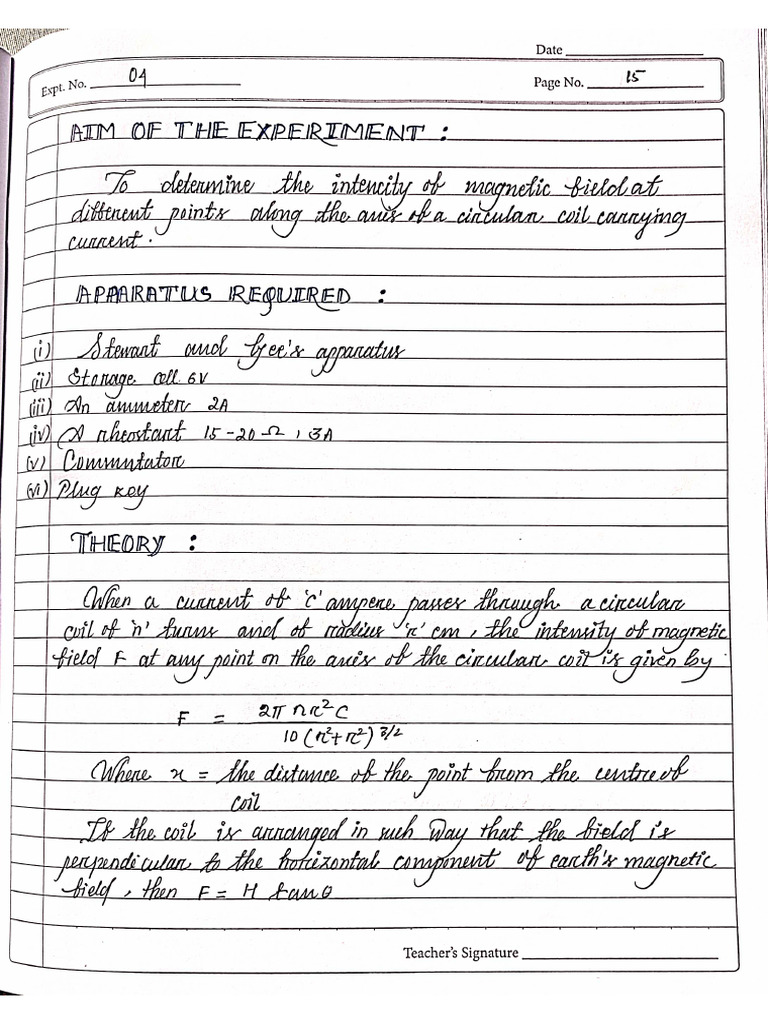 Date
Expt. No. 04
Page No. 15
AIM OF THE EXPERIMENT :
To determine the intencity of magnetic field at
different points along the axis of a circular coil carrying
current.
APAARATUS REQUIRED :
(i) Stewart and Gee's apparatus
(ii) Storage cell 6V
(iii) An ammeter 2A
(iv) A rheostant 15-20 Ω, 3A
(v) Commutator
(vi) Plug key
THEORY :
When a current of 'c' ampere passes through a circular
coil of 'n' turns and of radius 'r' cm, the intensity of magnetic
field F at any point on the axis of the circular coil is given by
F = 2π nr²C
10 (x²+r²) 3/2
Where x = the distance of the point from the centre of
coil
If the coil is arranged in such way that the field is
perpendicular to the horizontal component of earth's magnetic
field, then F = H tanθ
Teacher's Signature